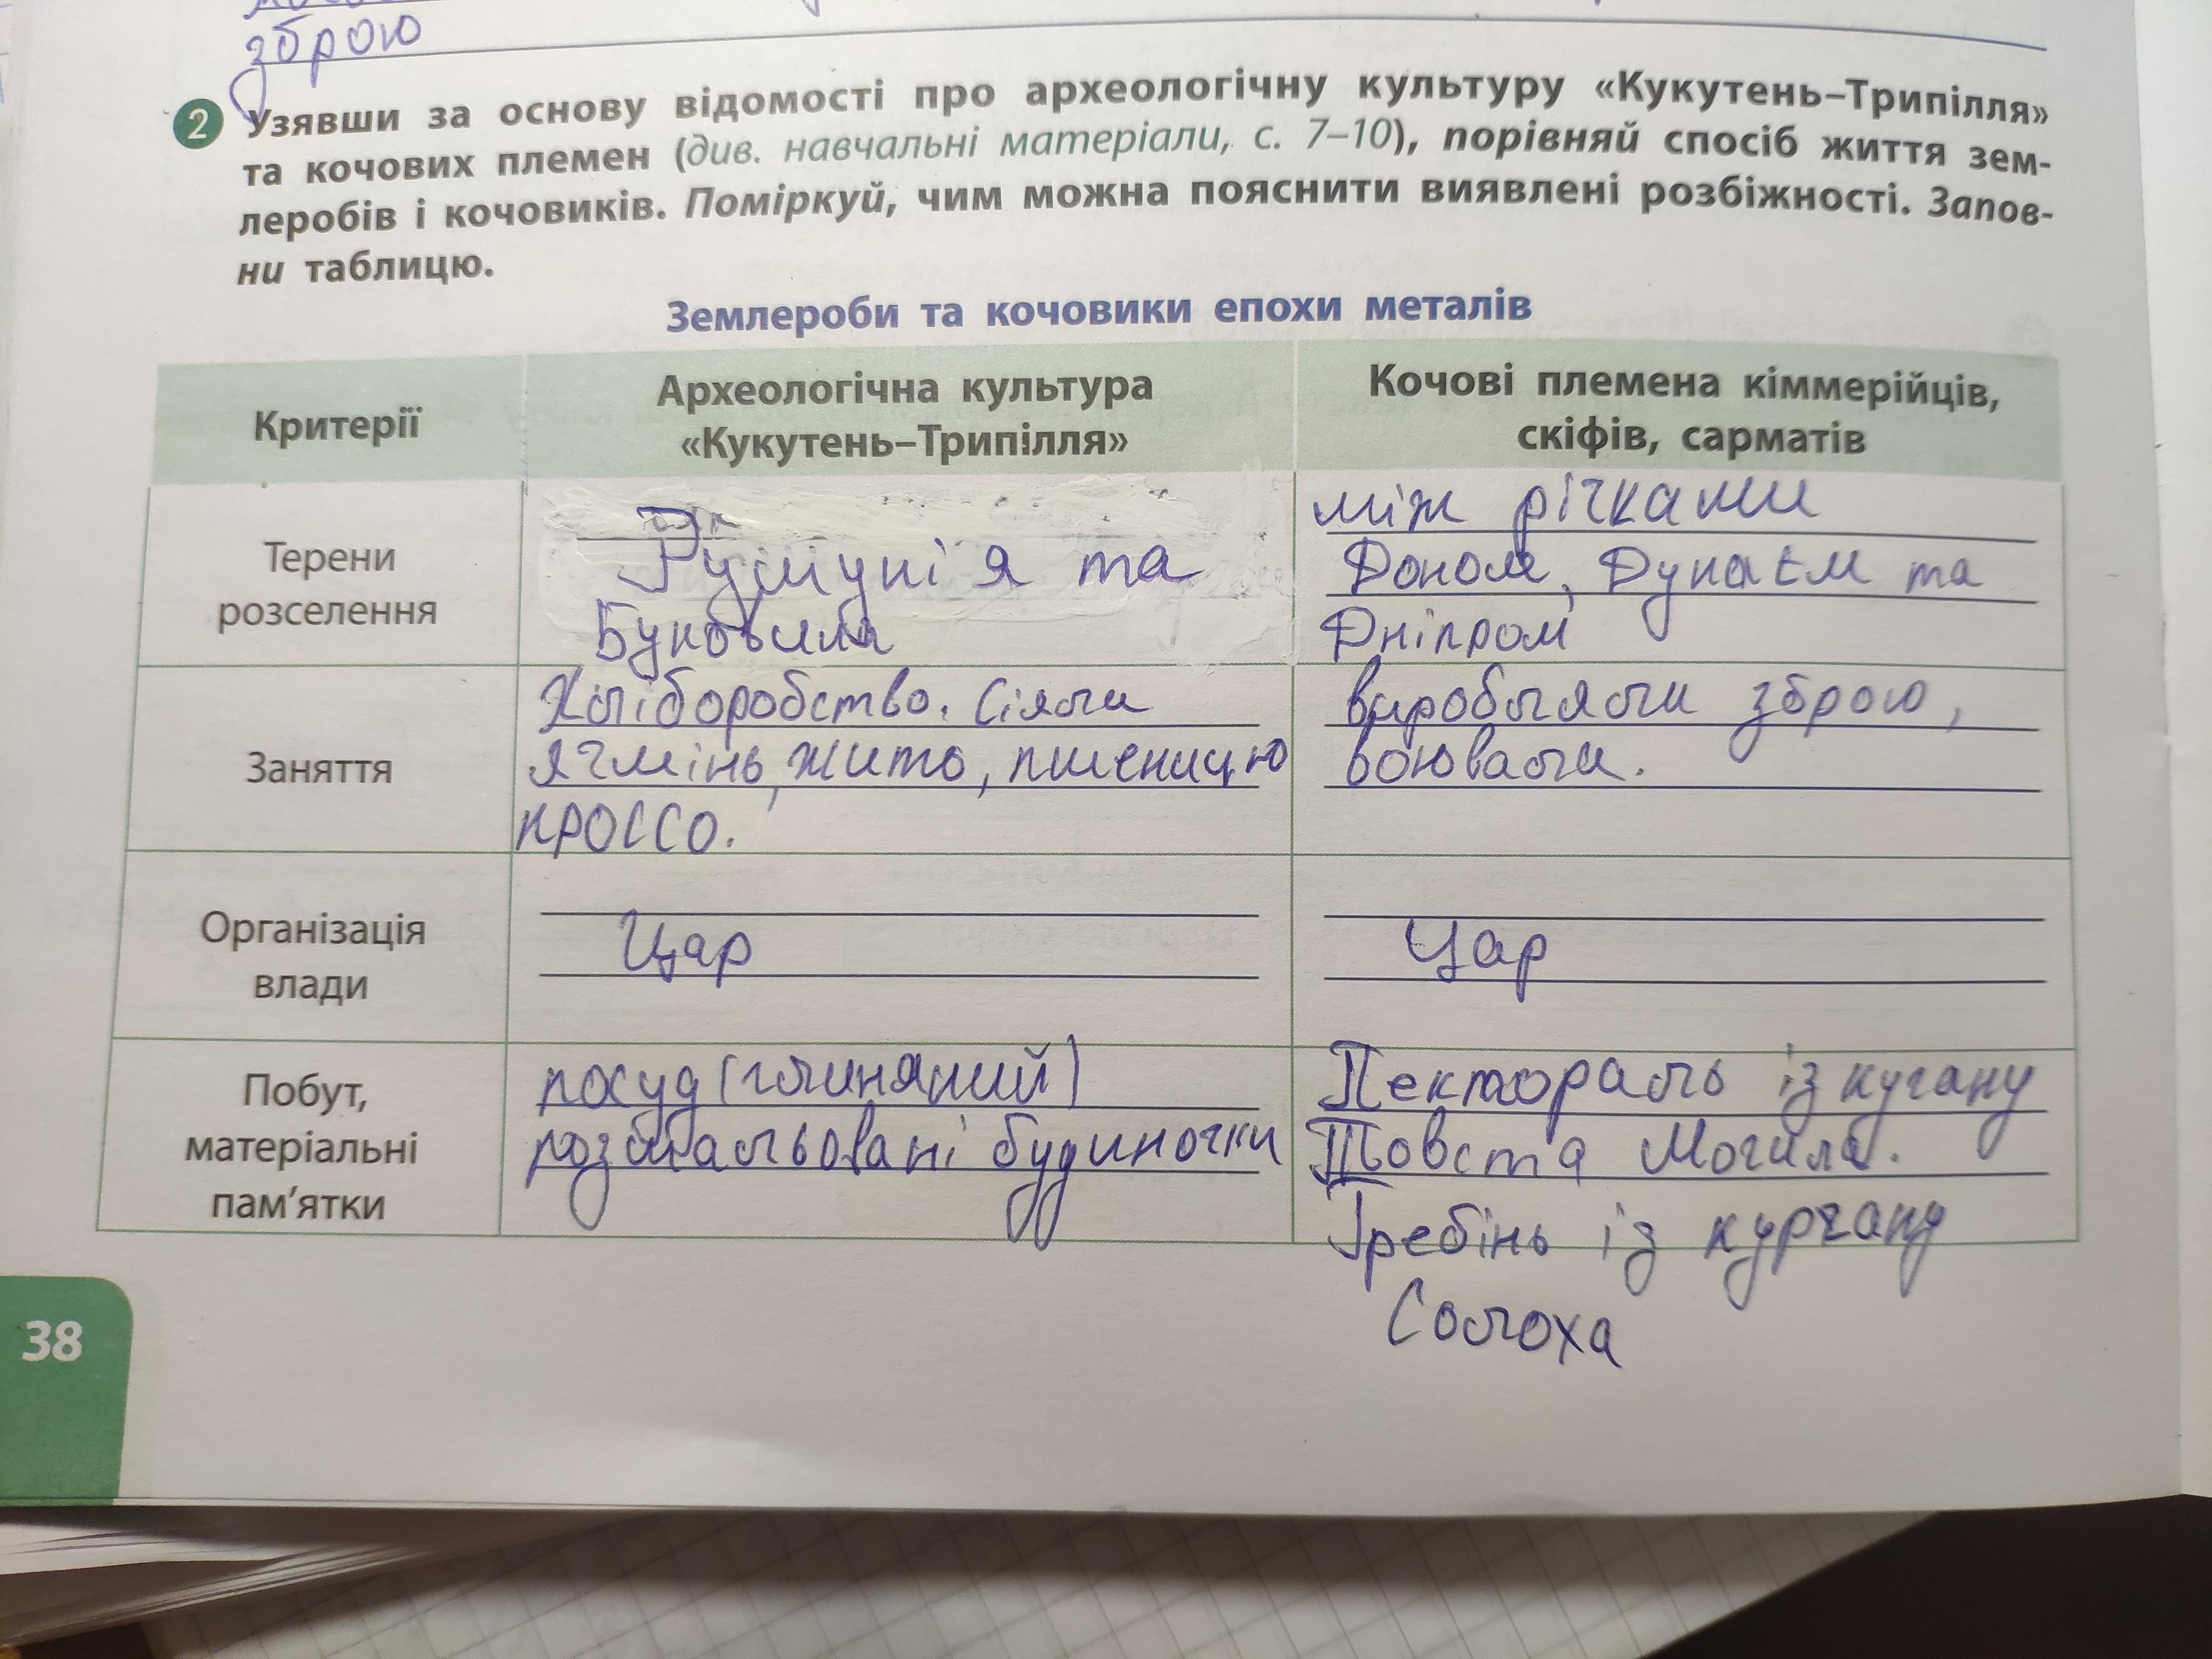 зброю
2 Узявши за основу відомості про археологічну культуру «Кукутень–Трипілля»
та кочових племен (див. навчальні матеріали, с. 7–10), порівняй спосіб життя зем-
леробів і кочовиків. Поміркуй, чим можна пояснити виявлені розбіжності. Запов-
ни таблицю.
Землероби та кочовики епохи металів
Критерії
Археологічна культура
«Кукутень–Трипілля»
Кочові племена кіммерійців,
скіфів, сарматів
Терени
розселення
Румуні я та
Буковина
між річками
Доном, Дунаєм та
Дніпром
Заняття
Хліборобство. Сіяли
ячмінь, жито, пшеницю
кроссо.
виробляли зброю,
воювали.
Організація
влади
Цар
Цар
Побут,
матеріальні
пам’ятки
посуд (глиняний)
розмальовані будиночки
Пектораль із кугану
Товста Могила.
Гребінь із кургану
Солоха
38